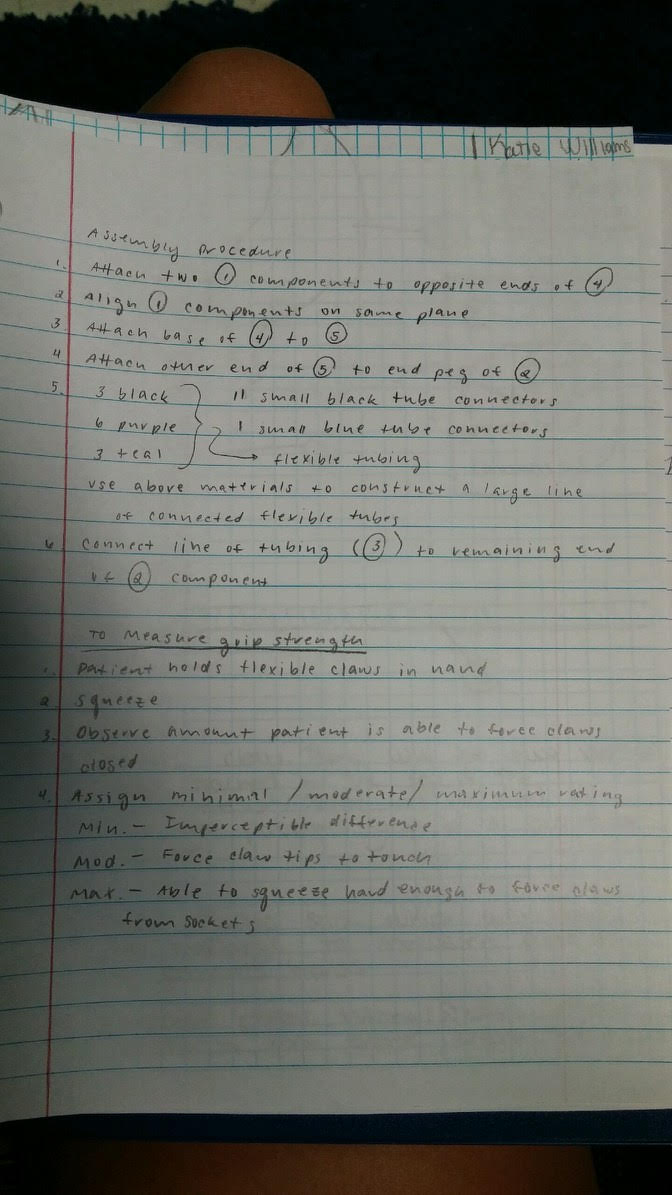 Katie Williams
Assembly procedure
1. Attach two ① components to opposite ends of ④
2 Align ① components on same plane
3. Attach base of ④ to ⑤
4 Attach other end of ⑤ to end peg of ②
5. 3 black } 11 small black tube connectors
6 purple 1 small blue tube connectors
3 teal → flexible tubing
use above materials to construct a large line
of connected flexible tubes
6 connect line of tubing (③) to remaining end
of ② component
To Measure grip strength
1. patient holds flexible claws in hand
2 squeeze
3. Observe amount patient is able to force claws
closed
4. Assign minimal / moderate / maximum rating
Min. - Imperceptible difference
Mod. - Force claw tips to touch
Max. - Able to squeeze hard enough to force claws
from sockets